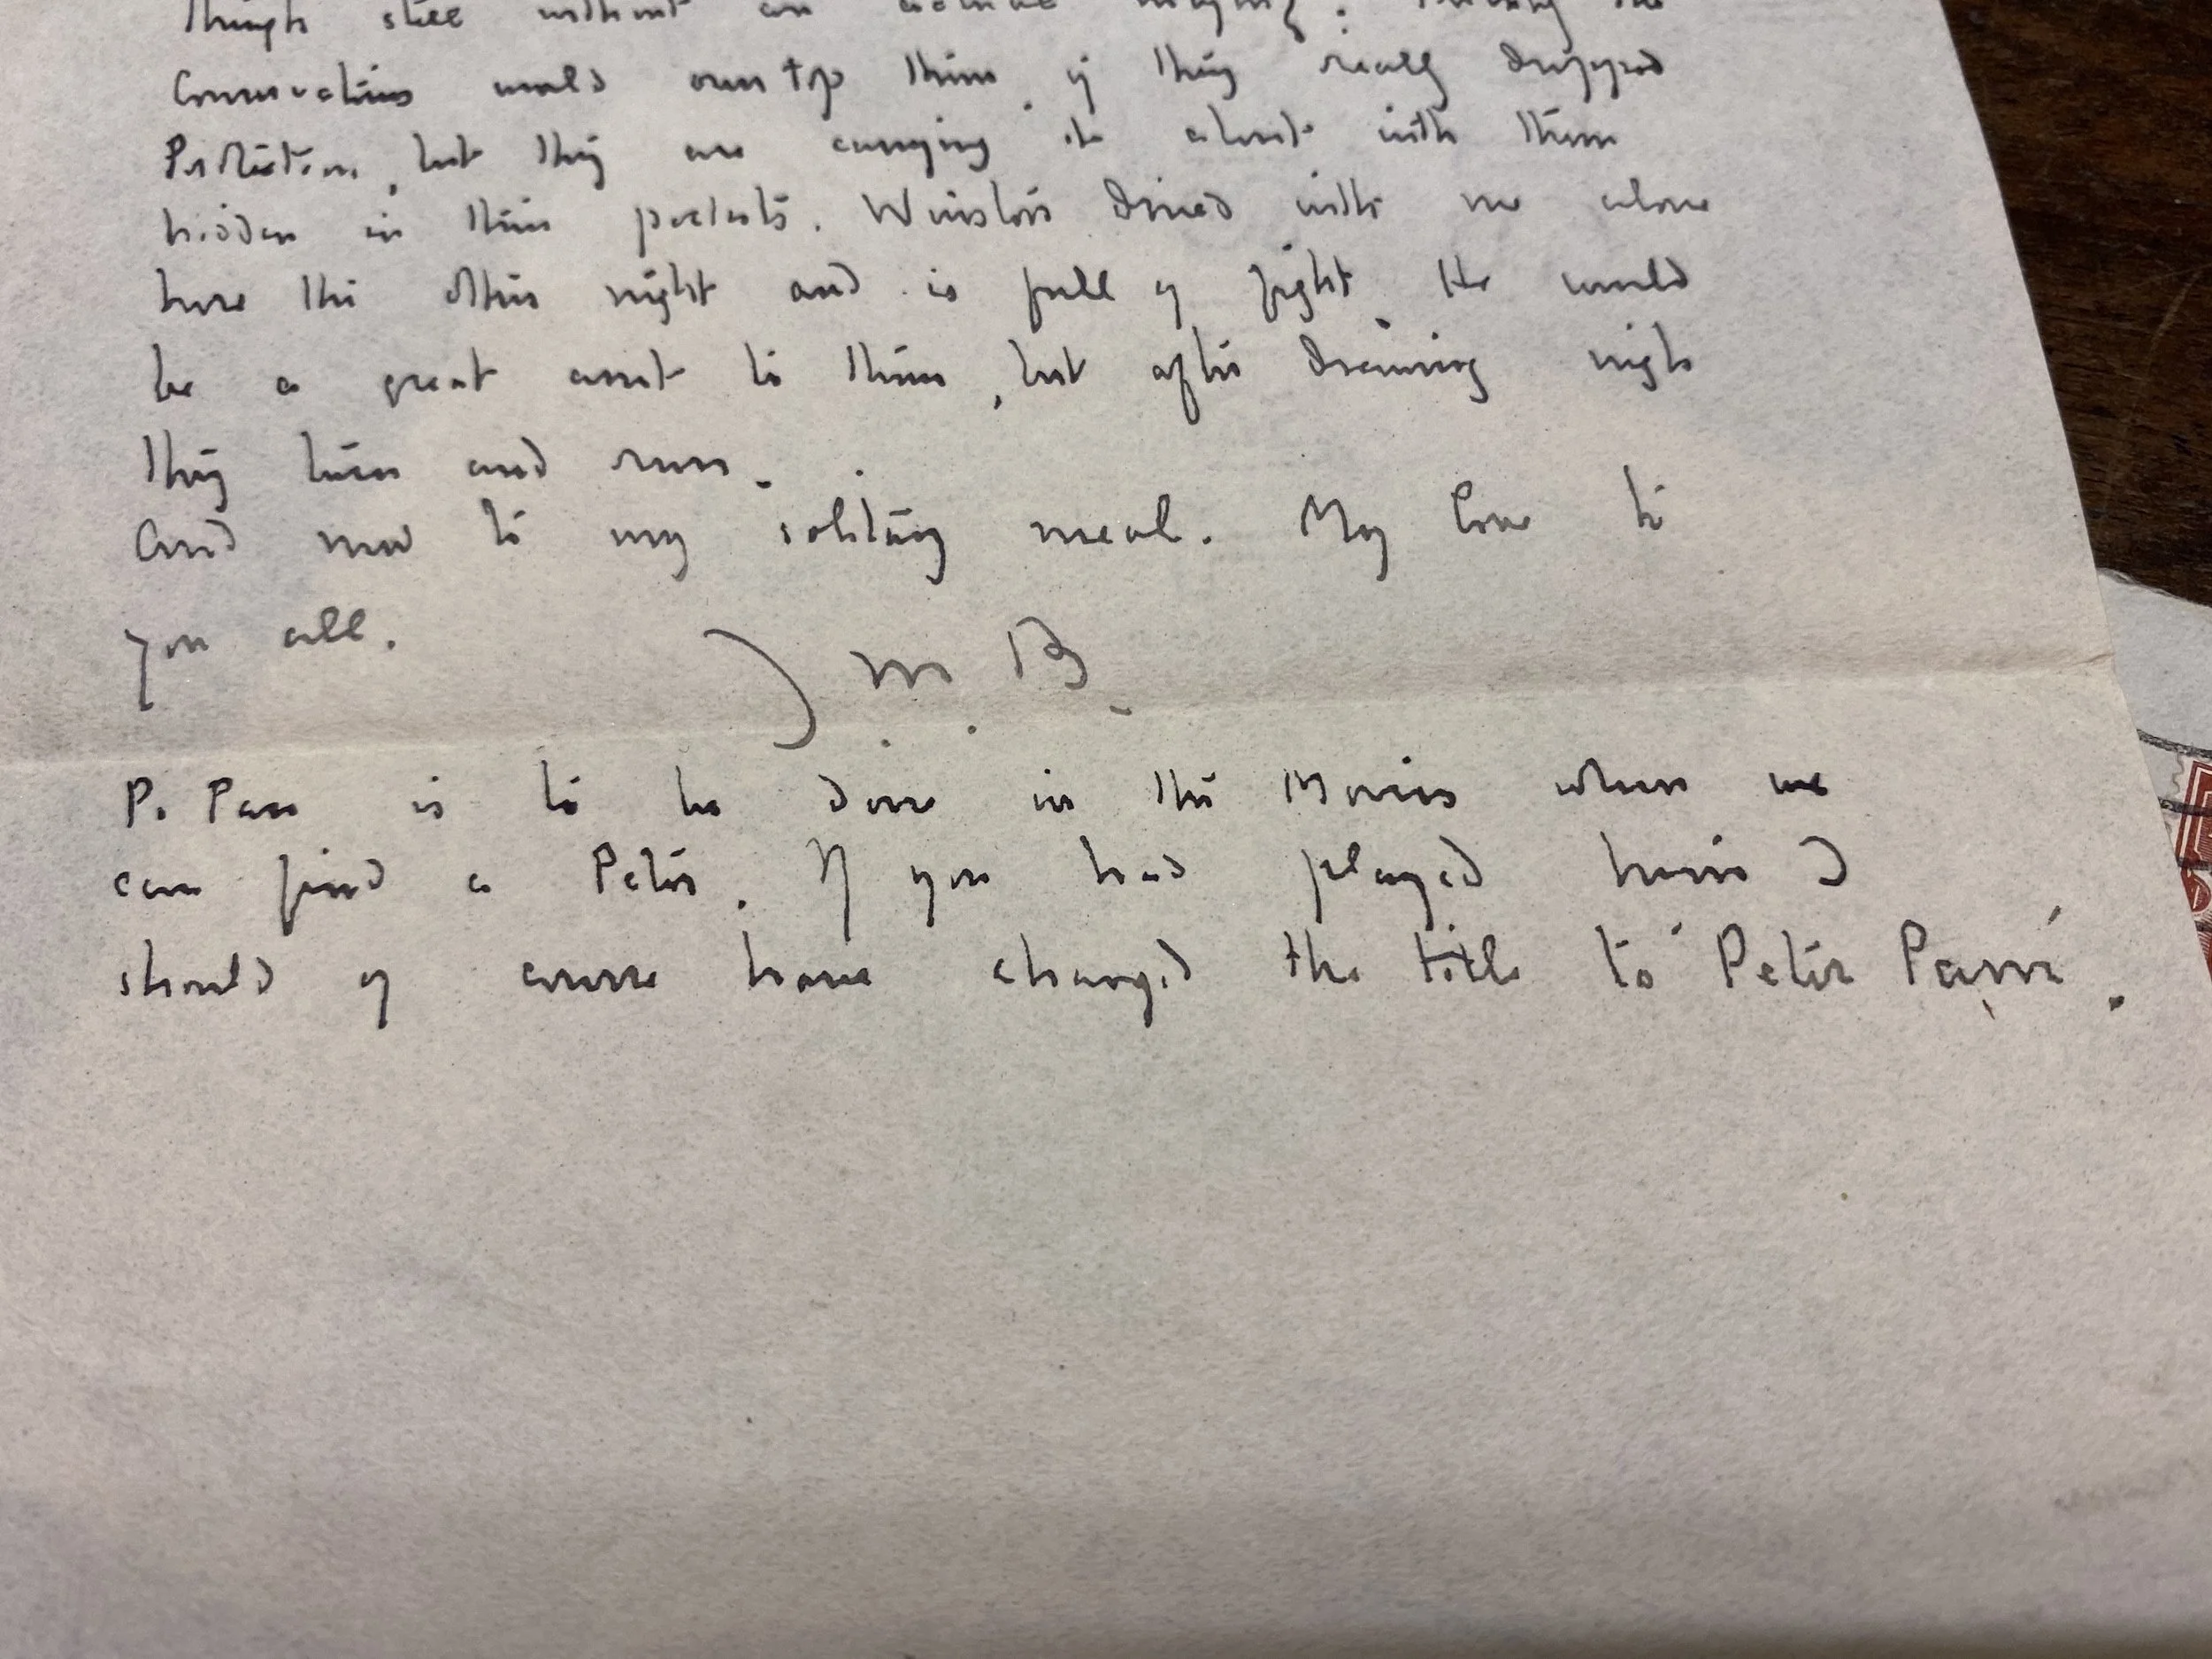 though still without an actual majority. Probably the
Conservatives would overtop them if they really dropped
Protection, but they are carrying it about with them
hidden in their pockets. Winston dined with me alone
here the other night and is full of fight. He would
be a great asset to them, but after drawing nigh
they turn and run.
And now to my solitary meal. My love to
you all.
J. M. B.
P. Pan is to be done in the Movies when we
can find a Peter. If you had played him I
should of course have changed the title to 'Peter Pam'.